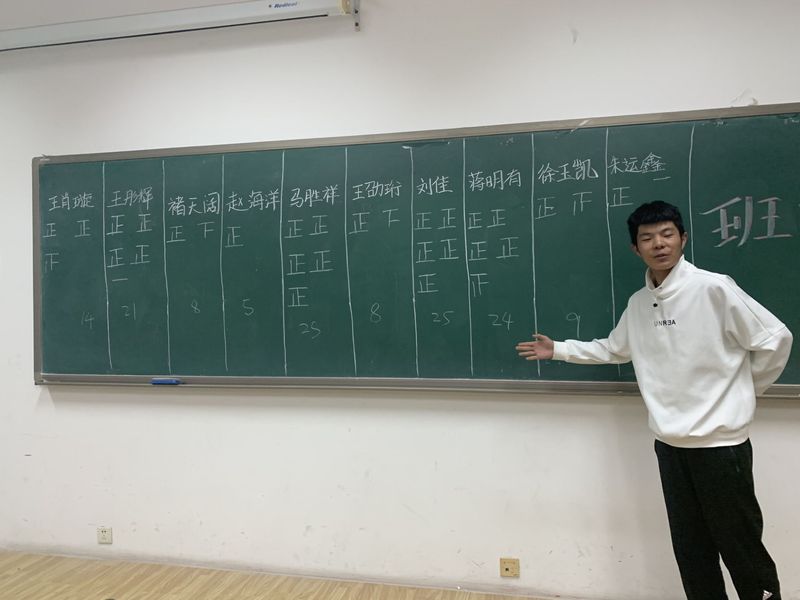 Redleaf
王肖璇 王彤辉 褚天阔 赵海洋 马胜祥 王劭珩 刘佳 蒋明有 徐玉凯 朱运鑫
正 正 正 正 正 正 正 正 正 正 正 正 正 正 正 一
正 正 正 正 正 正 正 正 正
一 正 正
14 21 8 5 25 8 25 24 9
班
UNREA